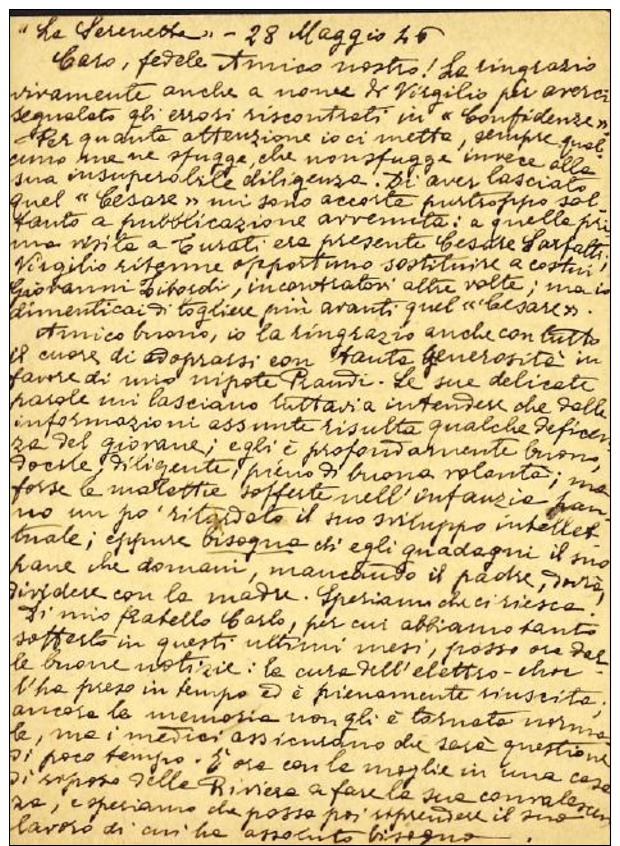 "La Serenetta" - 28 Maggio 46
Caro, fedele Amico nostro! La ringrazio
vivamente anche a nome di Virgilio per averci
segnalato gli errori riscontrati in "Confidenze".
Per quanta attenzione io ci metta, sempre qual-
cuno me ne sfugge, che non sfugge invece alla
sua insuperabile diligenza. Di aver lasciato
quel "Cesare" mi sono accorta purtroppo sol-
tanto a pubblicazione avvenuta: a quella pri
ma visita a Turati era presente Cesare Sarfatti;
Virgilio ritenne opportuno sostituire a costui
Giovanni Zibordi, incontratovi altre volte; ma io
dimenticai di togliere più avanti quel "Cesare".
Amico buono, io la ringrazio anche con tutto
il cuore di adoprarsi con tanta generosità in
favore di mio nipote Prandi. Le sue delicate
parole mi lasciano tuttavia intendere che dalle
informazioni assunte risulta qualche deficen-
za del giovane; egli è profondamente buono,
docile, diligente, pieno di buona volontà; ma
forse le malattie sofferte nell'infanzia han-
no un po' ritardato il suo sviluppo intellet
tuale; eppure bisogna ch'egli guadagni il suo
pane che domani, mancando il padre, dovrà,
dividere con la madre. Speriamo che ci riesca.
Di mio fratello Carlo, per cui abbiamo tanto
sofferto in questi ultimi mesi, posso ora dar-
le buone notizie: la cura dell'elettro-choc
l'ha preso in tempo ed è pienamente riuscita;
ancora la memoria non gli è tornata norma
le, ma i medici assicurano che sarà questione
di poco tempo. È ora con la moglie in una casa
di riposo della Riviera a fare la sua convalescen
za, e speriamo che possa poi riprendere il suo
lavoro di cui ha assoluto bisogno.